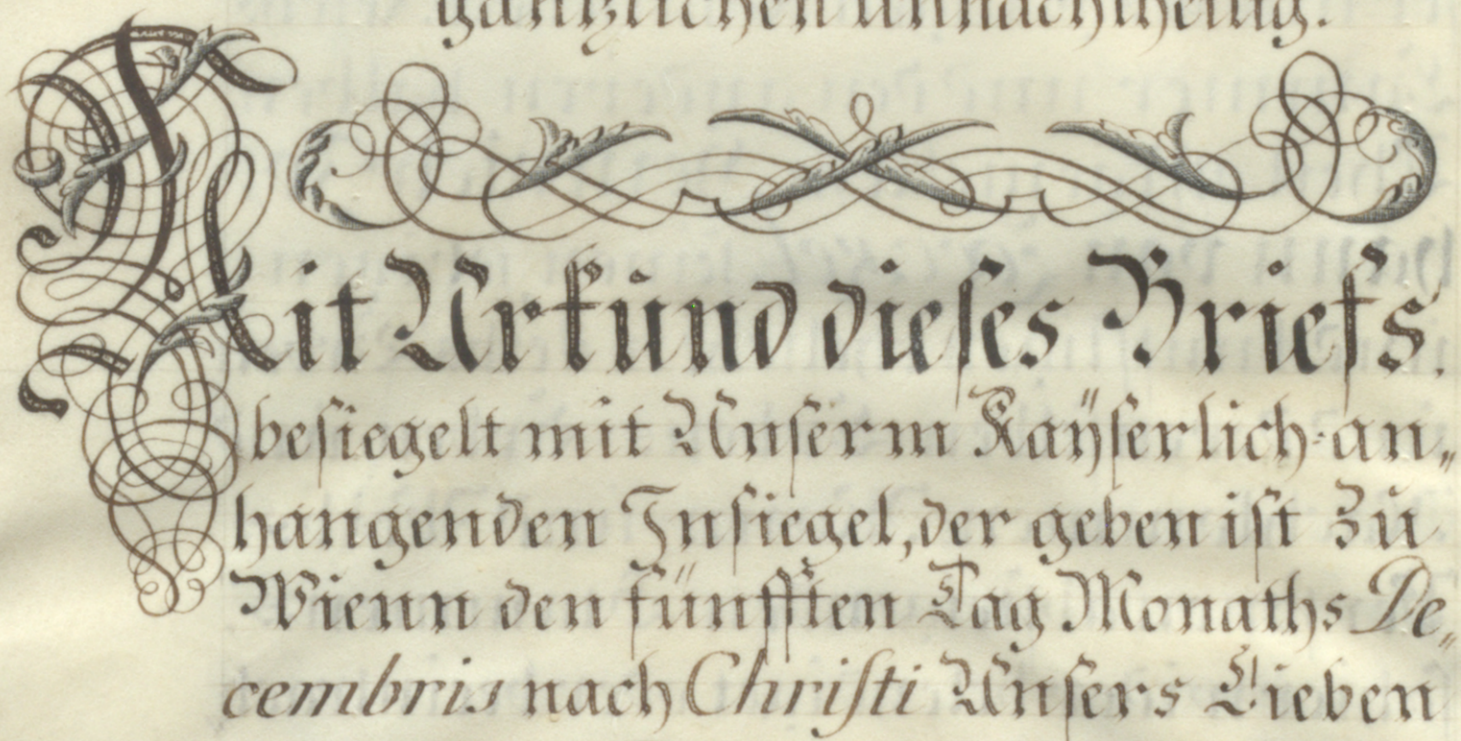 gäntzlichen unnachtheilig.
Mit Urkund dieses Briefs.
besiegelt mit Unserm Kaÿserlich-an„
hangenden Insiegel, der geben ist zu
Wienn den fünfften Tag Monaths De„
cembris nach Christi Unsers Lieben